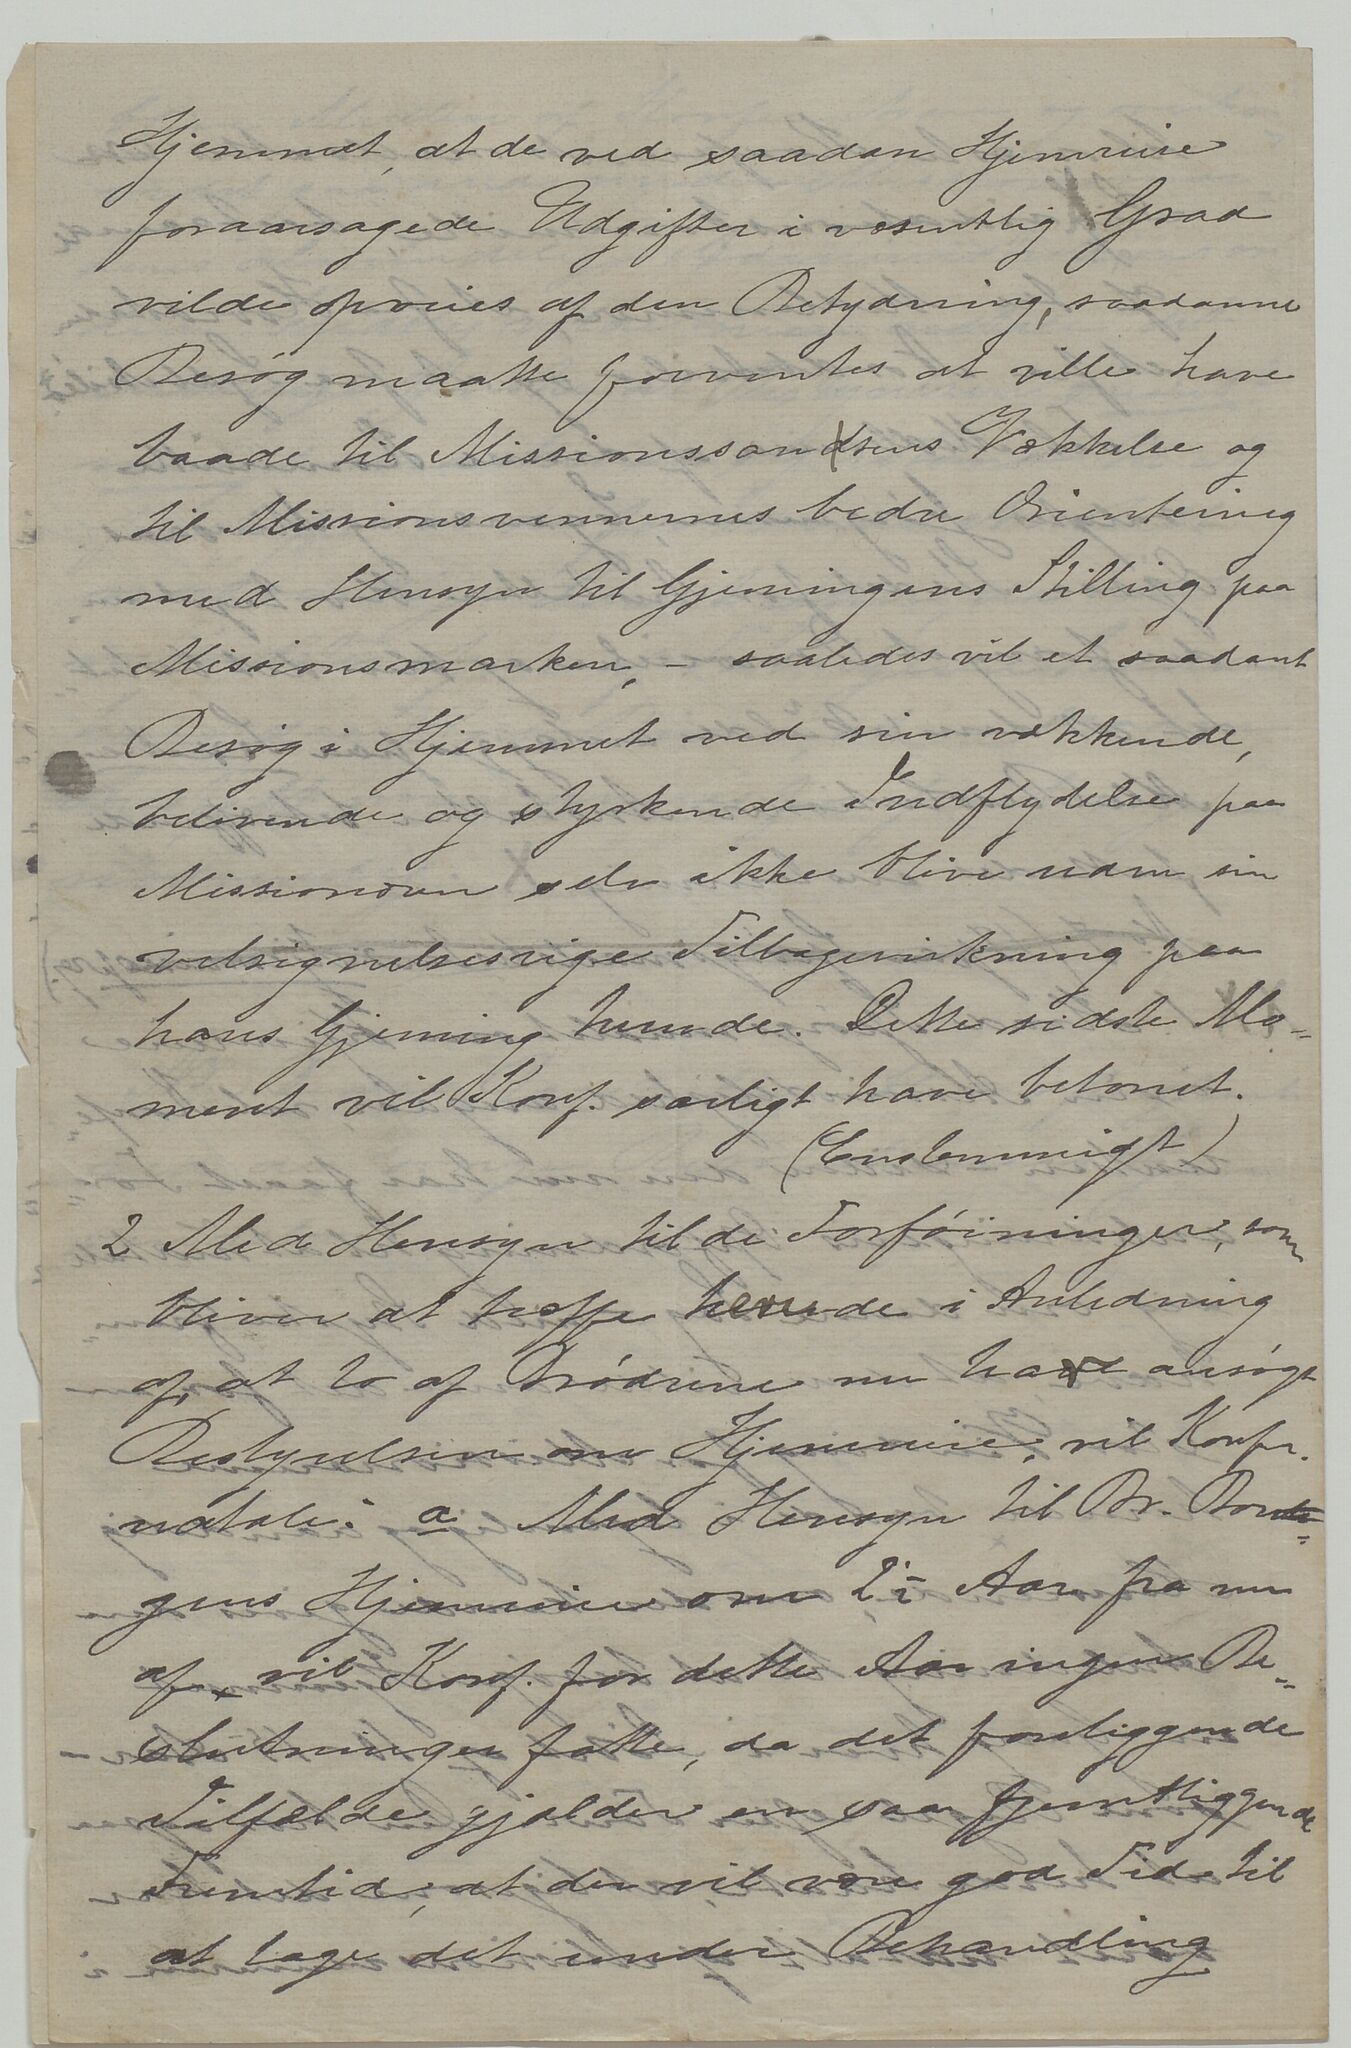 Hjemmet, at de ved saadan Hjemreise
foraarsagede Udgifter i væsentlig Grad
vilde opveies af den Betydning, saadanne
Besøg maatte forventes at ville have
baade til Missionssandsens Vækkelse og
til Missionsvennernes bedre Orientering
med Hensyn til Gjerningens Stilling paa
Missionsmarken, - saaledes vil et saadant
Besøg i Hjemmet ved sin vækkende,
belivende og styrkende Indflydelse paa
Missionæren selv ikke blive uden sin
velsignelsesrige Tilbagevirkning paa
hans Gjerning herude. Dette sidste Mo-
ment vil Konf. særligt have betonet.
(Enstemmigt)
2 Med Hensyn til de Forføininger, som
bliver at træffe herude i Anledning
af, at to af Brødrene nu have ansøgt
Bestyrelsen om Hjemreise, vil Konfr.
udtale: a Med Hensyn til Br. Bor-
gens Hjemreise om 2½ Aar fra nu
af vil Konf. for dette Aar ingen Be-
slutninger fatte, da det foreliggende
Tilfælde gjælder en saa fjerntliggende
Fremtid, at der vil være god Tid til
at tage det under Behandling